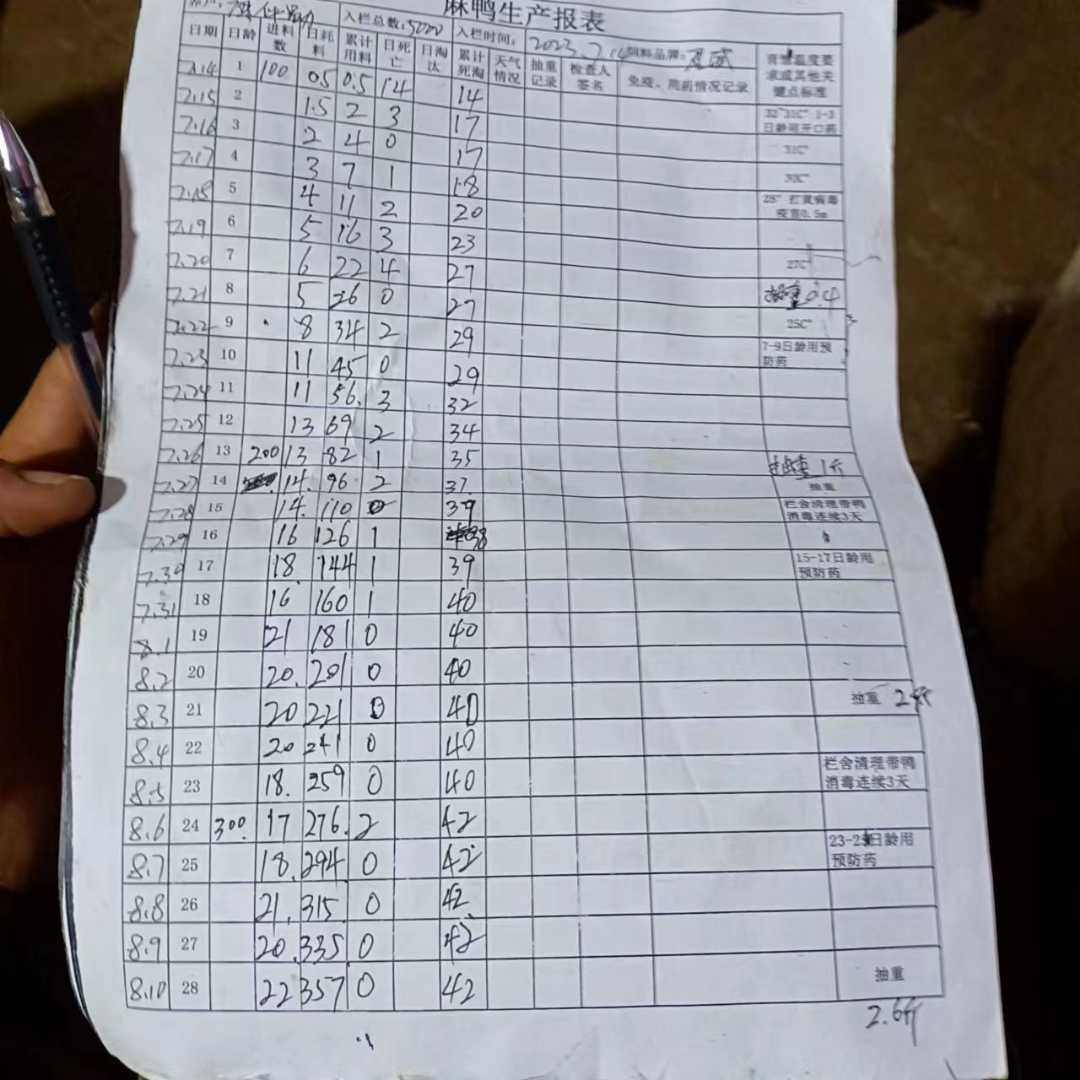 麻鸭生产报表
入栏总数:5000 入栏时间: 2023.7.14 饲料品牌:
日期 日龄 进料数 日耗料 累计用料 日死亡 日淘汰 累计死淘 天气情况 抽重记录 检查人签名 免疫、用药情况记录 育雏温度要求或其他关键点标准
7.14 1 100 0.5 0.5 14 14
7.15 2 1.5 2 3 17 32~31C° 1-3日龄用开口药
7.16 3 2 4 0 17 31C°
7.17 4 3 7 1 18 30C°
7.18 5 4 11 2 20 28° 打黄病毒疫苗0.5m
7.19 6 5 16 3 23
7.20 7 6 22 4 27 27C°
7.21 8 5 26 0 27 抽重 0.4
7.22 9 8 34 2 29 25C°
7.23 10 11 45 0 29 7-9日龄用预防药
7.24 11 11 56. 3 32
7.25 12 13 69 2 34
7.26 13 200 13 82 1 35 抽重 1斤
7.27 14 14. 96. 2 37 抽重
7.28 15 14. 110 0 37 栏舍清理带鸭消毒连续3天
7.29 16 16 126 1 38
7.30 17 18. 144 1 39 15-17日龄用预防药
7.31 18 16 160 1 40
8.1 19 21 181 0 40
8.2 20 20. 201 0 40
8.3 21 20 221 0 40 抽重 2斤
8.4 22 20 241 0 40
8.5 23 18. 259 0 40 栏舍清理带鸭消毒连续3天
8.6 24 300. 17 276. 2 42
8.7 25 18. 294. 0 42 23-25日龄用预防药
8.8 26 21. 315 0 42
8.9 27 20. 335. 0 42
8.10 28 22 357 0 42 抽重
2.6斤